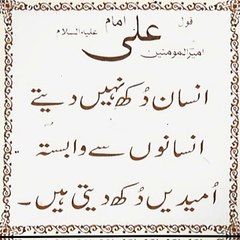 قول امام علی علیہ السلام
امیرالمومنین
انسان دُکھ نہیں دیتے
انسانوں سے وابستہ
اُمیدیں دُکھ دیتی ہیں۔